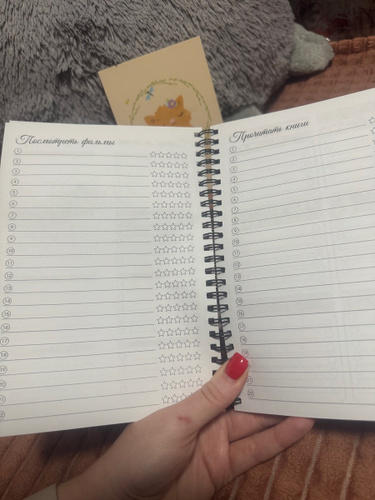 Посмотреть фильмы
1
2
3
4
5
6
7
8
9
10
11
12
13
14
15
16
17
18
19
20
21
22
Прочитать книги
1
2
3
4
5
6
7
8
9
10
11
12
13
14
15
16
17
18
19